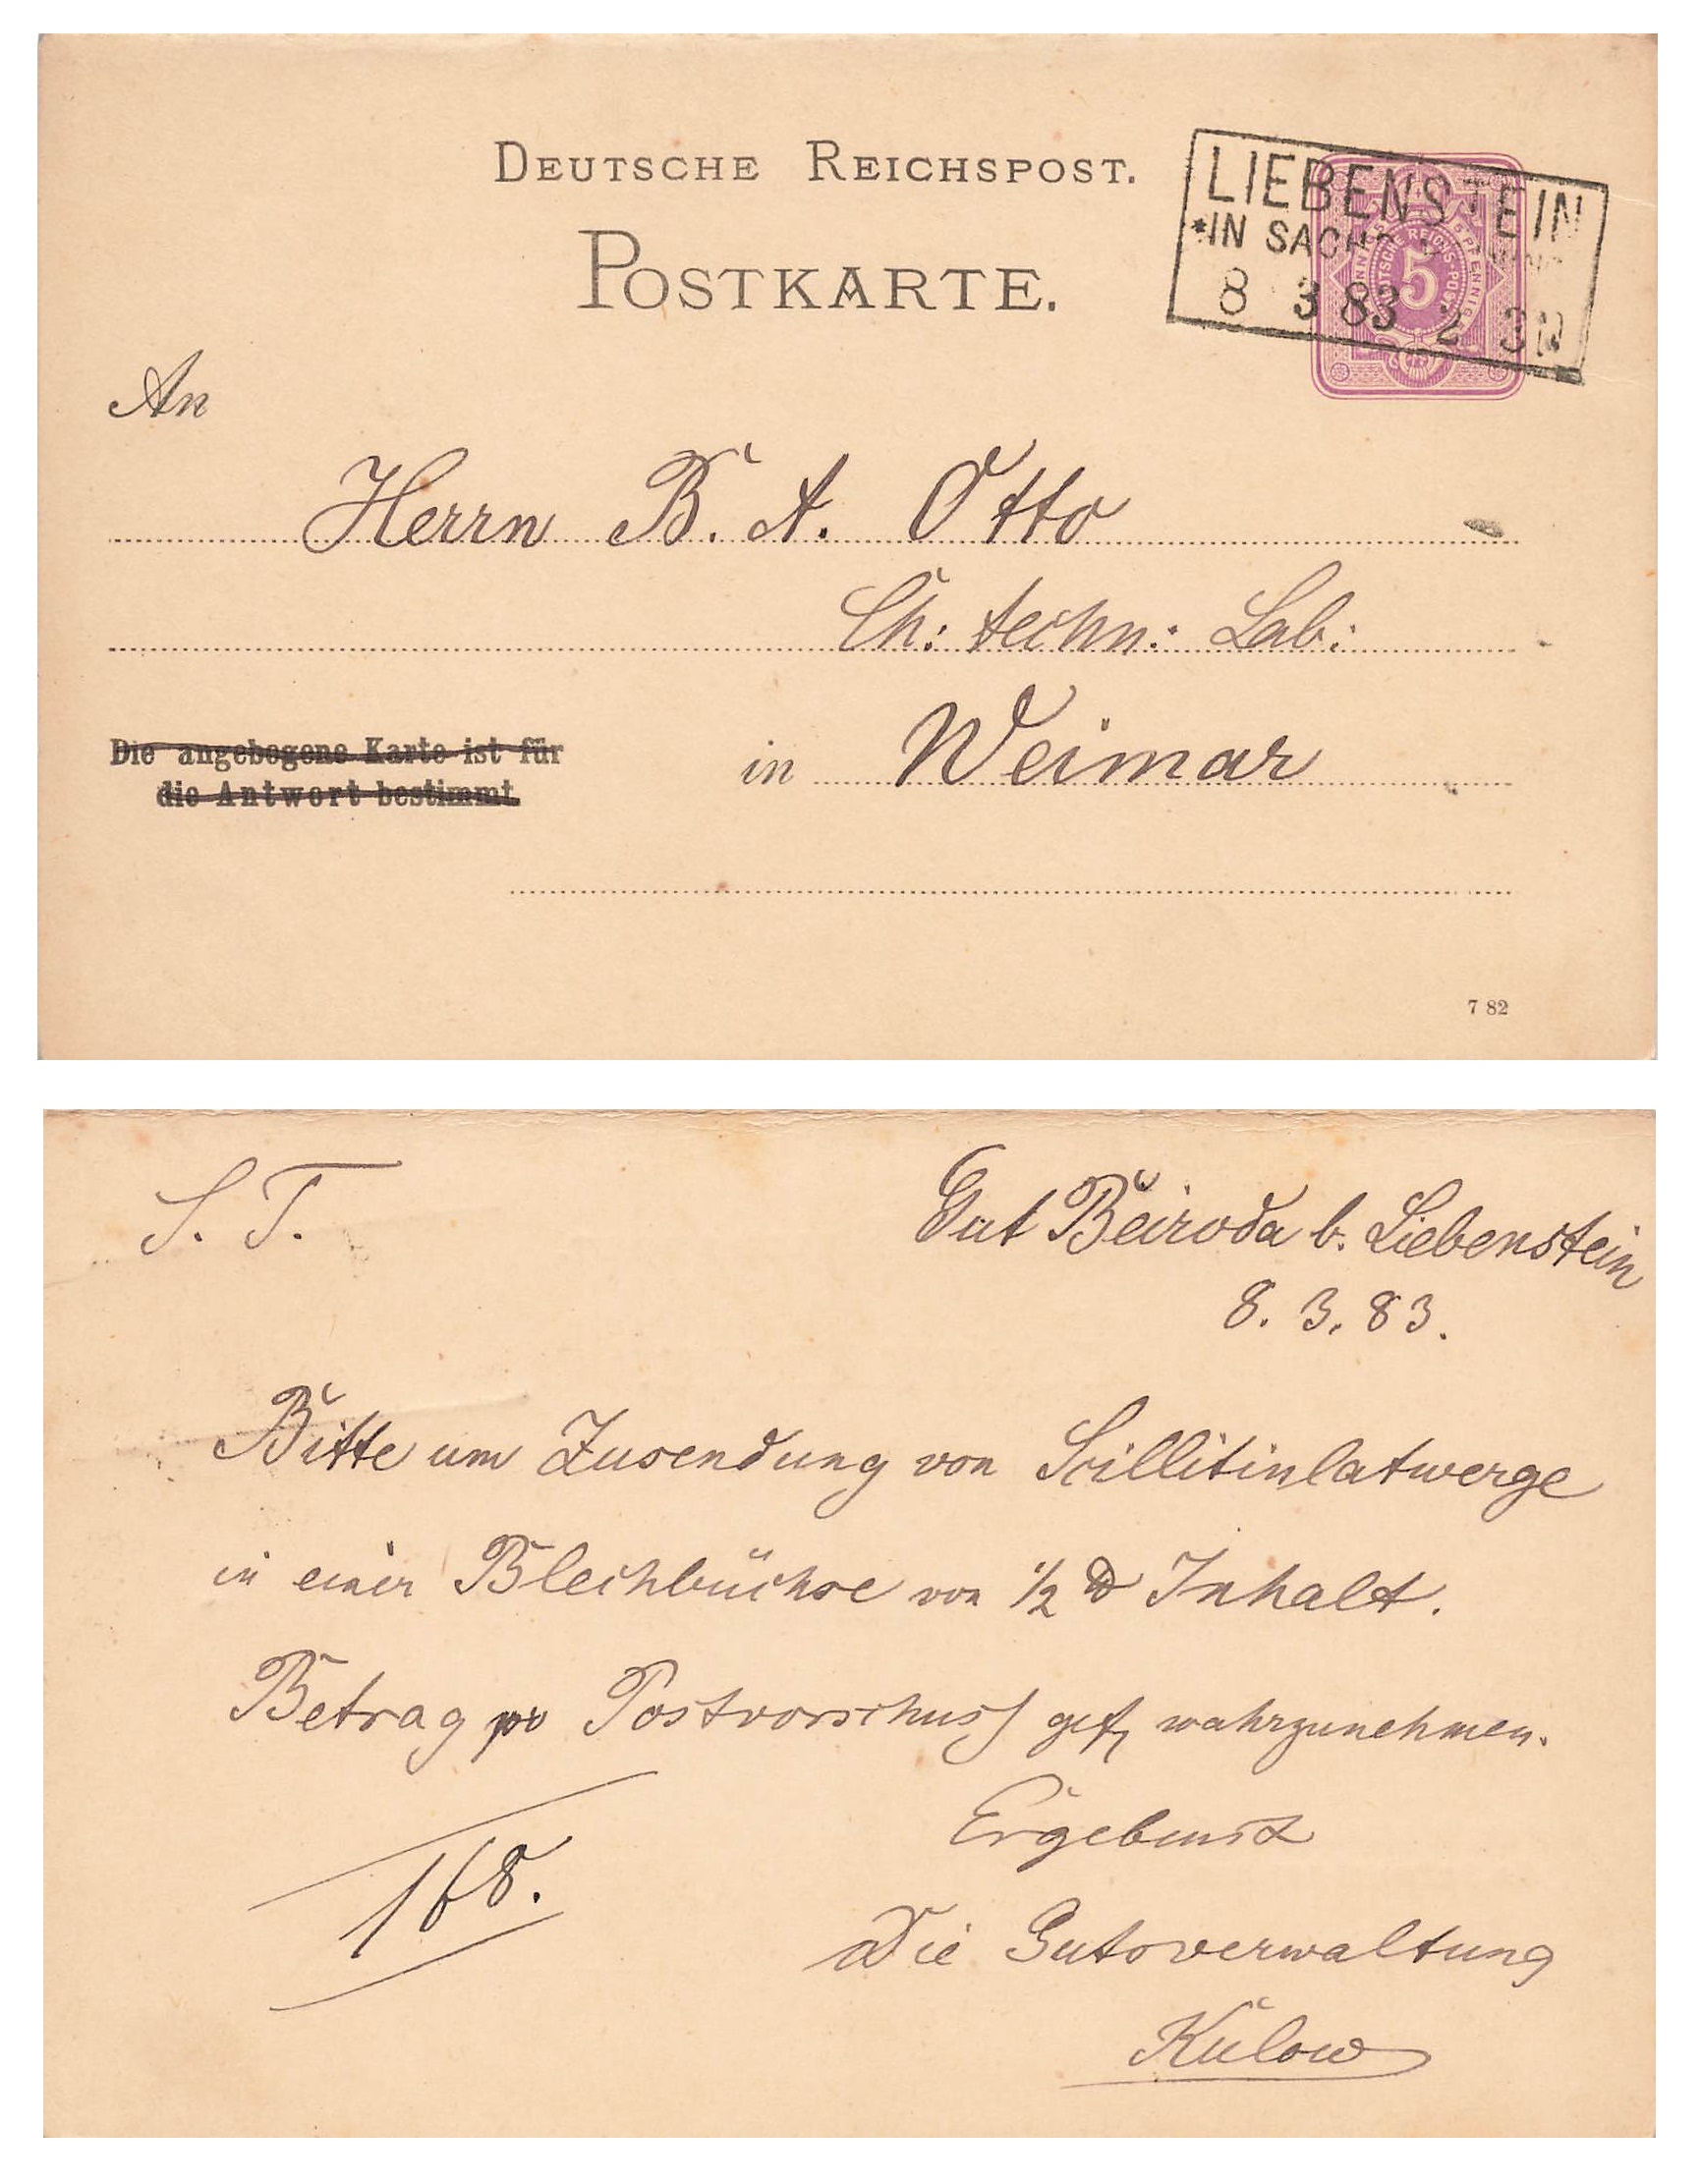 DEUTSCHE REICHSPOST.
POSTKARTE.
LIEBENSTEIN
*IN
8 3 83 2 3N
5
An
Herrn B. A. Otto
Ch: techn: Lab:
Die angebogene Karte ist für
die Antwort bestimmt.
in Weimar
7 82
S. T.
Gut Beiroda b. Liebenstein
8. 3. 83.
Bitte um Zusendung von Scillitinlatwerge
in einer Blechbüchse von 1/2 ℔ Inhalt.
Betrag pr Postvorschuß gefl wahrzunehmen.
Ergebenst
168.
Die Gutsverwaltung
Külow